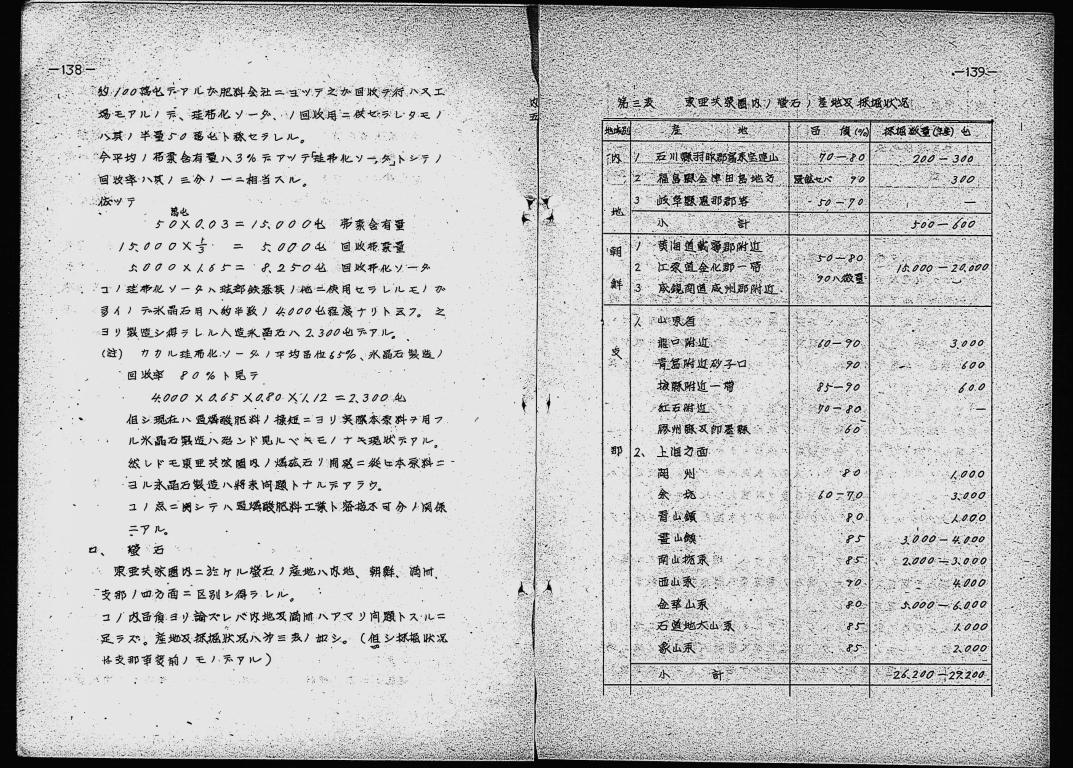 —138—
約100萬屯デアルガ肥料会社ニヨツテ之ガ回收ヲ行ハヌ工
場モアルノデ、珪弗化ソーダ、ノ回收用ニ供セラレタモノ
ハ其ノ半量50萬屯ト称セラレル。
今平均ノ弗素含有量ハ3%デアツテ「珪弗化ソーダ」トシテノ
回收率ハ其ノ三分ノ一ニ相当スル。
依ツテ
萬屯
50×0.03=15.000屯 弗素含有量
15.000×1/3 = 5.000屯 回收弗素量
5.000×1.65= 8.250屯 回收弗化ソーダ
コノ珪弗化ソーダハ琺瑯鉄器類ノ他ニ使用セラレルモノガ
多イノデ氷晶石用ハ約半数ノ4,000屯程度ナリト云フ。之
ヨリ製造シ得ラレル人造氷晶石ハ2.300屯デアル。
(註) カカル珪弗化ソーダノ平均品位65%、氷晶石製造ノ
回收率 80%ト見テ
4.000×0.65×0.80×1.12=2.300屯
但シ現在ハ過燐酸肥料ノ極短ニヨリ実際本原料ヲ用フ
ル氷晶石製造ハ殆ンド見ルベキモノナキ現狀デアル。
然レドモ東亜共栄圏内ノ燐鉱石ノ開発ニ從ヒ本原料ニ
ヨル氷晶石製造ハ將来問題トナルデアラウ。
コノ点ニ関シテハ過燐酸肥料工業ト密接不可分ノ関係
ニアル。
ロ、 螢石
東亜共栄圏内ニ於ケル螢石ノ産地ハ内地、朝鮮、満洲、
支那ノ四方面ニ区別シ得ラレル。
コノ内品質ヨリ論ズレバ内地及満洲ハアマリ問題トスルニ
足ラズ。産地及採掘狀況ハ第三表ノ如シ。(但シ採掘狀況
ハ支那事変前ノモノデアル)
—139—
第三表 東亜共栄圏内ノ螢石ノ産地及採掘狀況
地域別 産地 品價(%) 採掘数量(年産)屯
内地
1 石川縣羽咋郡 70-80 200-300
2 福島縣会津田島地方 90 300
3 岐阜縣恵那郡 50-70 —
小計 500-600
朝鮮
1 黄海道載寧郡附近 50-80
2 江原道金化郡一帯 15.000-20.000
3 咸鏡南道咸州郡附近 90ハ微量
支那
1、 山東省
龍口附近 60-90 3.000
青島附近砂子口 90 600
掖縣附近一帯 85-90 600
紅石附近 70-80 —
膠州縣及即墨縣 60
2、 上海方面
湖州 80 1.000
余姚 60-70 3.000
80 1.000
85 3.000-4.000
85 2.000-3.000
西山系 90 4.000
金華山系 80 5.000-6.000
石道地大山系 85 1.000
象山系 85 2.000
小計 26.200-29.200